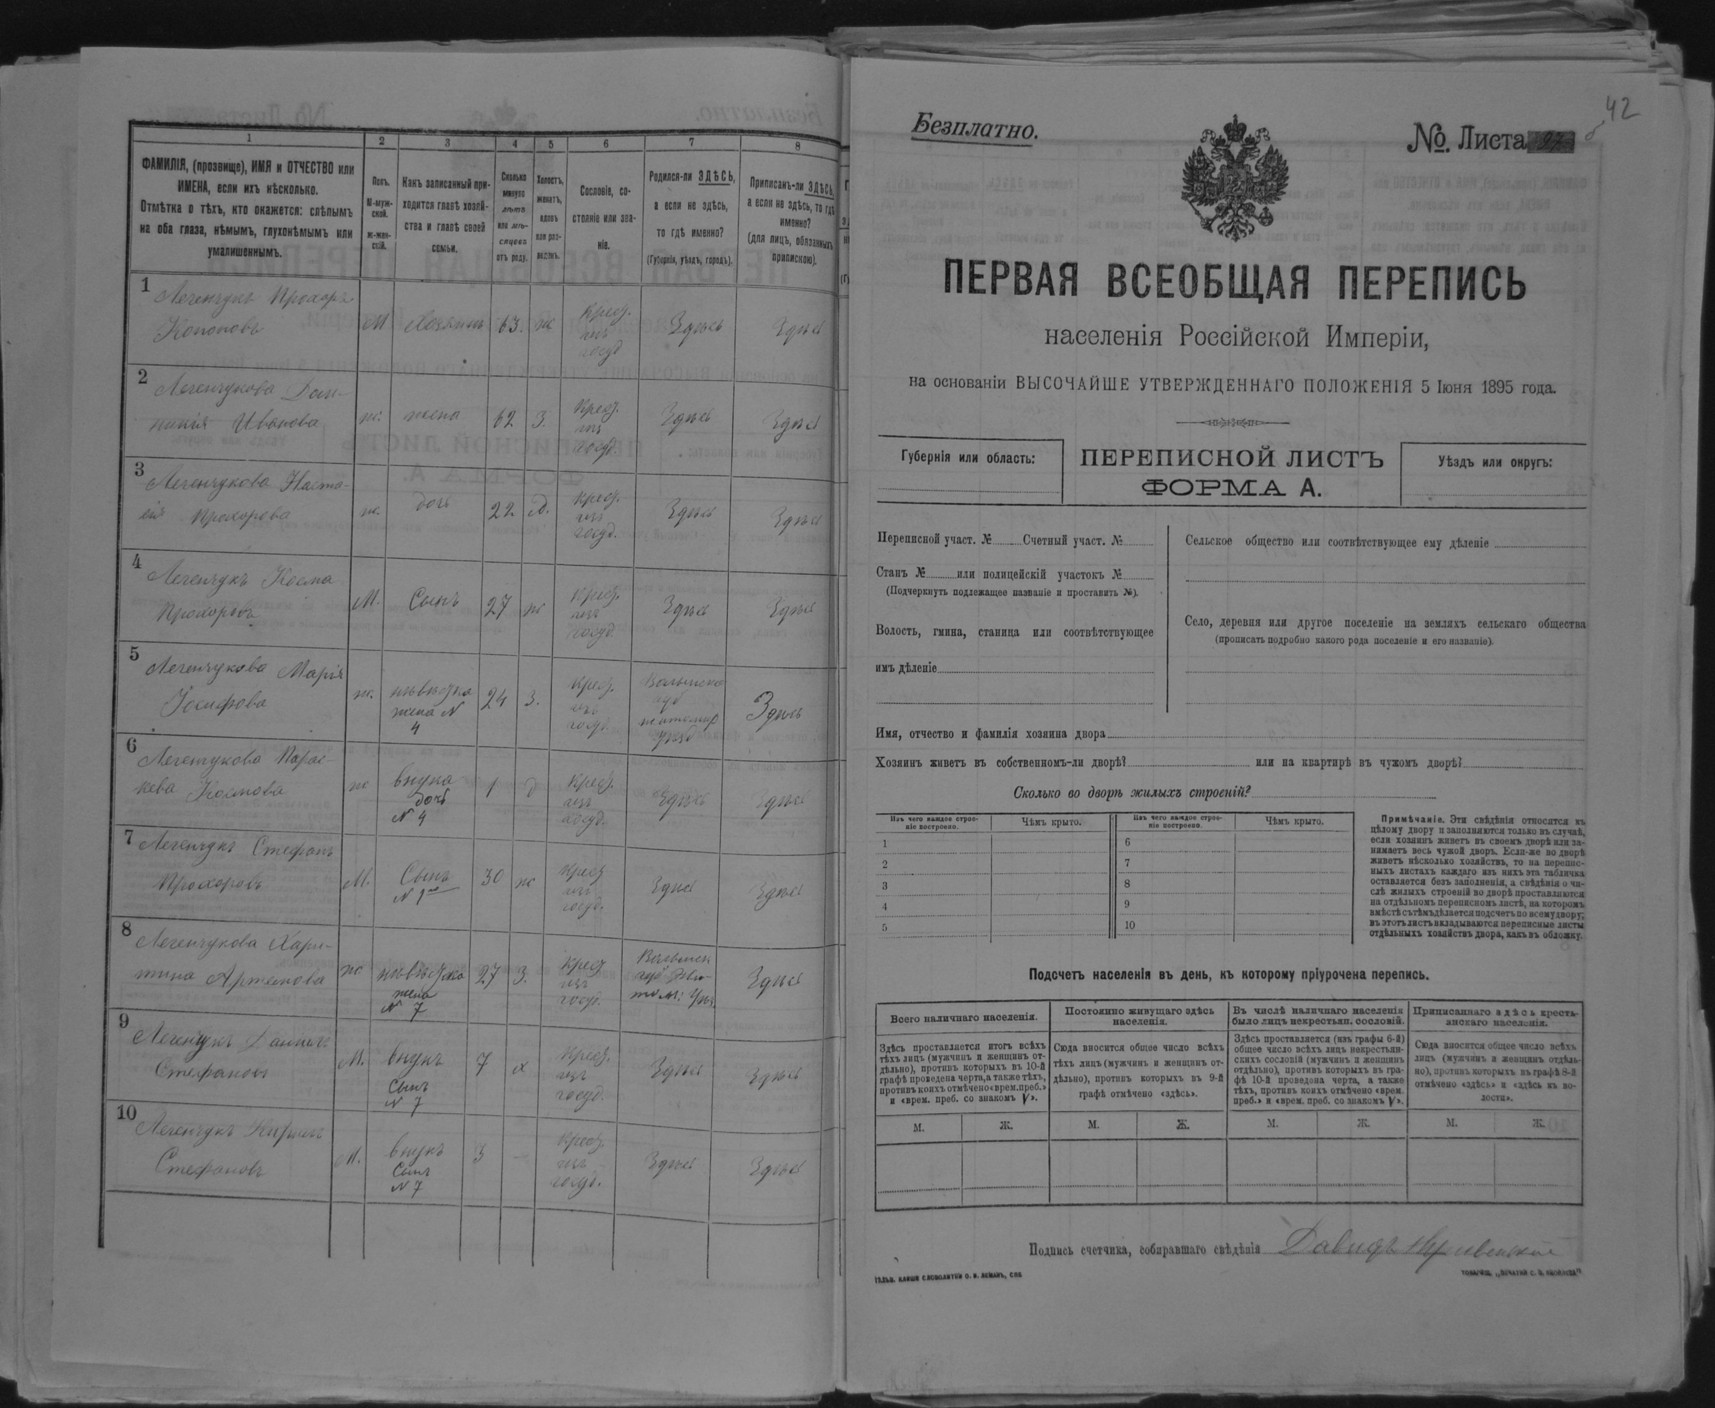 1
2
3
4
5
6
7
8
ФАМИЛІЯ, (прозвище), ИМЯ и ОТЧЕСТВО или
ИМЕНА, если ихъ нѣсколько.
Отмѣтка о тѣхъ, кто окажется: слѣпымъ
на оба глаза, нѣмымъ, глухонѣмымъ или
умалишеннымъ.
Полъ.
М-муж-
ской.
ж-жен-
скій.
Какъ записанный при-
ходится главѣ хозяй-
ства и главѣ своей
семьи.
Сколько
минуло
лѣтъ
или мѣ-
сяцевъ
отъ роду.
Холостъ,
женатъ,
вдовъ
или раз-
веденъ.
Сословіе, со-
стояніе или зва-
ніе.
Родился-ли ЗДѢСЬ,
а если не здѣсь,
то гдѣ именно?
(Губернія, уѣздъ, городъ).
Приписанъ-ли ЗДѢСЬ,
а если не здѣсь, то гдѣ
именно?
(для лицъ, обязанныхъ
припискою).
1 Легенчукъ Прохоръ
Кононовъ М Хозяинъ 63. ж Крест. изъ госуд. Здѣсь Здѣсь
2 Легенчукова Дом-
никія Иванова ж. жена 62 З. Крест. изъ госуд. Здѣсь Здѣсь
3 Легенчукова Наста-
сія Прохорова ж. дочь 22 д. Крест. изъ госуд. Здѣсь Здѣсь
4 Легенчукъ Косма
Прохоровъ М. Сынъ 27 ж Крест. изъ госуд. Здѣсь Здѣсь
5 Легенчукова Марія
Іосифова ж. невѣстка жена N 4 24 З. Крест. изъ госуд. Волынска губ житомир уѣзд Здѣсь
6 Легенчукова Парас-
кева Космова ж внука дочь N 4 1 д Крест. изъ госуд. Здѣсь Здѣсь
7 Легенчукъ Стефанъ
Прохоровъ М. Сынъ N 1го 30 ж Крест изъ госуд. Здѣсь Здѣсь
8 Легенчукова Хари-
тина Артемова ж невѣстка жена N 7 27 З. Крест изъ госуд. Волынск губ Здѣсь
9 Легенчукъ Даніилъ
Стефановъ М. внукъ Сынъ N 7 7 х Крест. изъ госуд. Здѣсь Здѣсь
10 Легенчукъ Кирилъ
Стефановъ М. внукъ Сынъ N 7 3 - Крест. изъ госуд. Здѣсь Здѣсь
42
Безплатно.
№. Листа
ПЕРВАЯ ВСЕОБЩАЯ ПЕРЕПИСЬ
населенія Россійской Имперіи,
на основаніи ВЫСОЧАЙШЕ УТВЕРЖДЕННАГО ПОЛОЖЕНІЯ 5 Іюня 1895 года.
Губернія или область:
ПЕРЕПИСНОЙ ЛИСТЪ
ФОРМА А.
Уѣздъ или округъ:
Переписной участ. № Счетный участ. №
Станъ № или полицейскій участокъ №
(Подчеркнуть подлежащее названіе и проставить №).
Волость, гмина, станица или соотвѣтствующее
имъ дѣленіе
Сельское общество или соотвѣтствующее ему дѣленіе
Село, деревня или другое поселеніе на земляхъ сельскаго общества
(прописать подробно какого рода поселеніе и его названіе).
Имя, отчество и фамилія хозяина двора
Хозяинъ живетъ въ собственномъ-ли дворѣ? или на квартирѣ въ чужомъ дворѣ?
Сколько во дворѣ жилыхъ строеній?
Изъ чего каждое строе-
ніе построено.
Чѣмъ крыто.
Изъ чего каждое строе-
ніе построено.
Чѣмъ крыто.
1
2
3
4
5
6
7
8
9
10
Примѣчаніе. Эти свѣдѣнія относятся къ
цѣлому двору и заполняются только въ случаѣ,
если хозяинъ живетъ въ своемъ дворѣ или за-
нимаетъ весь чужой дворъ. Если-же во дворѣ
живетъ нѣсколько хозяйствъ, то на перепис-
ныхъ листахъ каждаго изъ нихъ эта табличка
оставляется безъ заполненія, а свѣдѣнія о чи-
слѣ жилыхъ строеній во дворѣ проставляются
на отдѣльномъ переписномъ листѣ, на которомъ
вмѣстѣ съ тѣмъ дѣлается подсчетъ по всему двору;
въ этотъ листъ вкладываются переписные листы
отдѣльныхъ хозяйствъ двора, какъ въ обложку.
Подсчетъ населенія въ день, къ которому пріурочена перепись.
Всего наличнаго населенія.
Постоянно живущаго здѣсь
населенія.
Въ числѣ наличнаго населенія
было лицъ некрестьян. сословій.
Приписаннаго здѣсь кресть-
янскаго населенія.
Здѣсь проставляется итогъ всѣхъ
тѣхъ лицъ (мужчинъ и женщинъ от-
дѣльно), противъ которыхъ въ 10-й
графѣ проведена черта, а также тѣхъ,
противъ коихъ отмѣчено «врем. преб.»
и «врем. преб. со знакомъ V».
Сюда вносится общее число всѣхъ
тѣхъ лицъ (мужчинъ и женщинъ от-
дѣльно), противъ которыхъ въ 9-й
графѣ отмѣчено «здѣсь».
Здѣсь проставляется (изъ графы 6-й)
общее число всѣхъ лицъ некрестьян-
скихъ сословій (мужчинъ и женщинъ
отдѣльно), противъ которыхъ въ гра-
фѣ 10-й проведена черта, а также
тѣхъ, противъ коихъ отмѣчено «врем.
преб.» и «врем. преб. со знакомъ V».
Сюда вносится общее число всѣхъ
лицъ (мужчинъ и женщинъ отдѣль-
но), противъ которыхъ въ графѣ 8-й
отмѣчено «здѣсь» и «здѣсь въ во-
лости».
М.
Ж.
М.
Ж.
М.
Ж.
М.
Ж.
Подпись счетчика, собиравшаго свѣдѣнія Давидъ